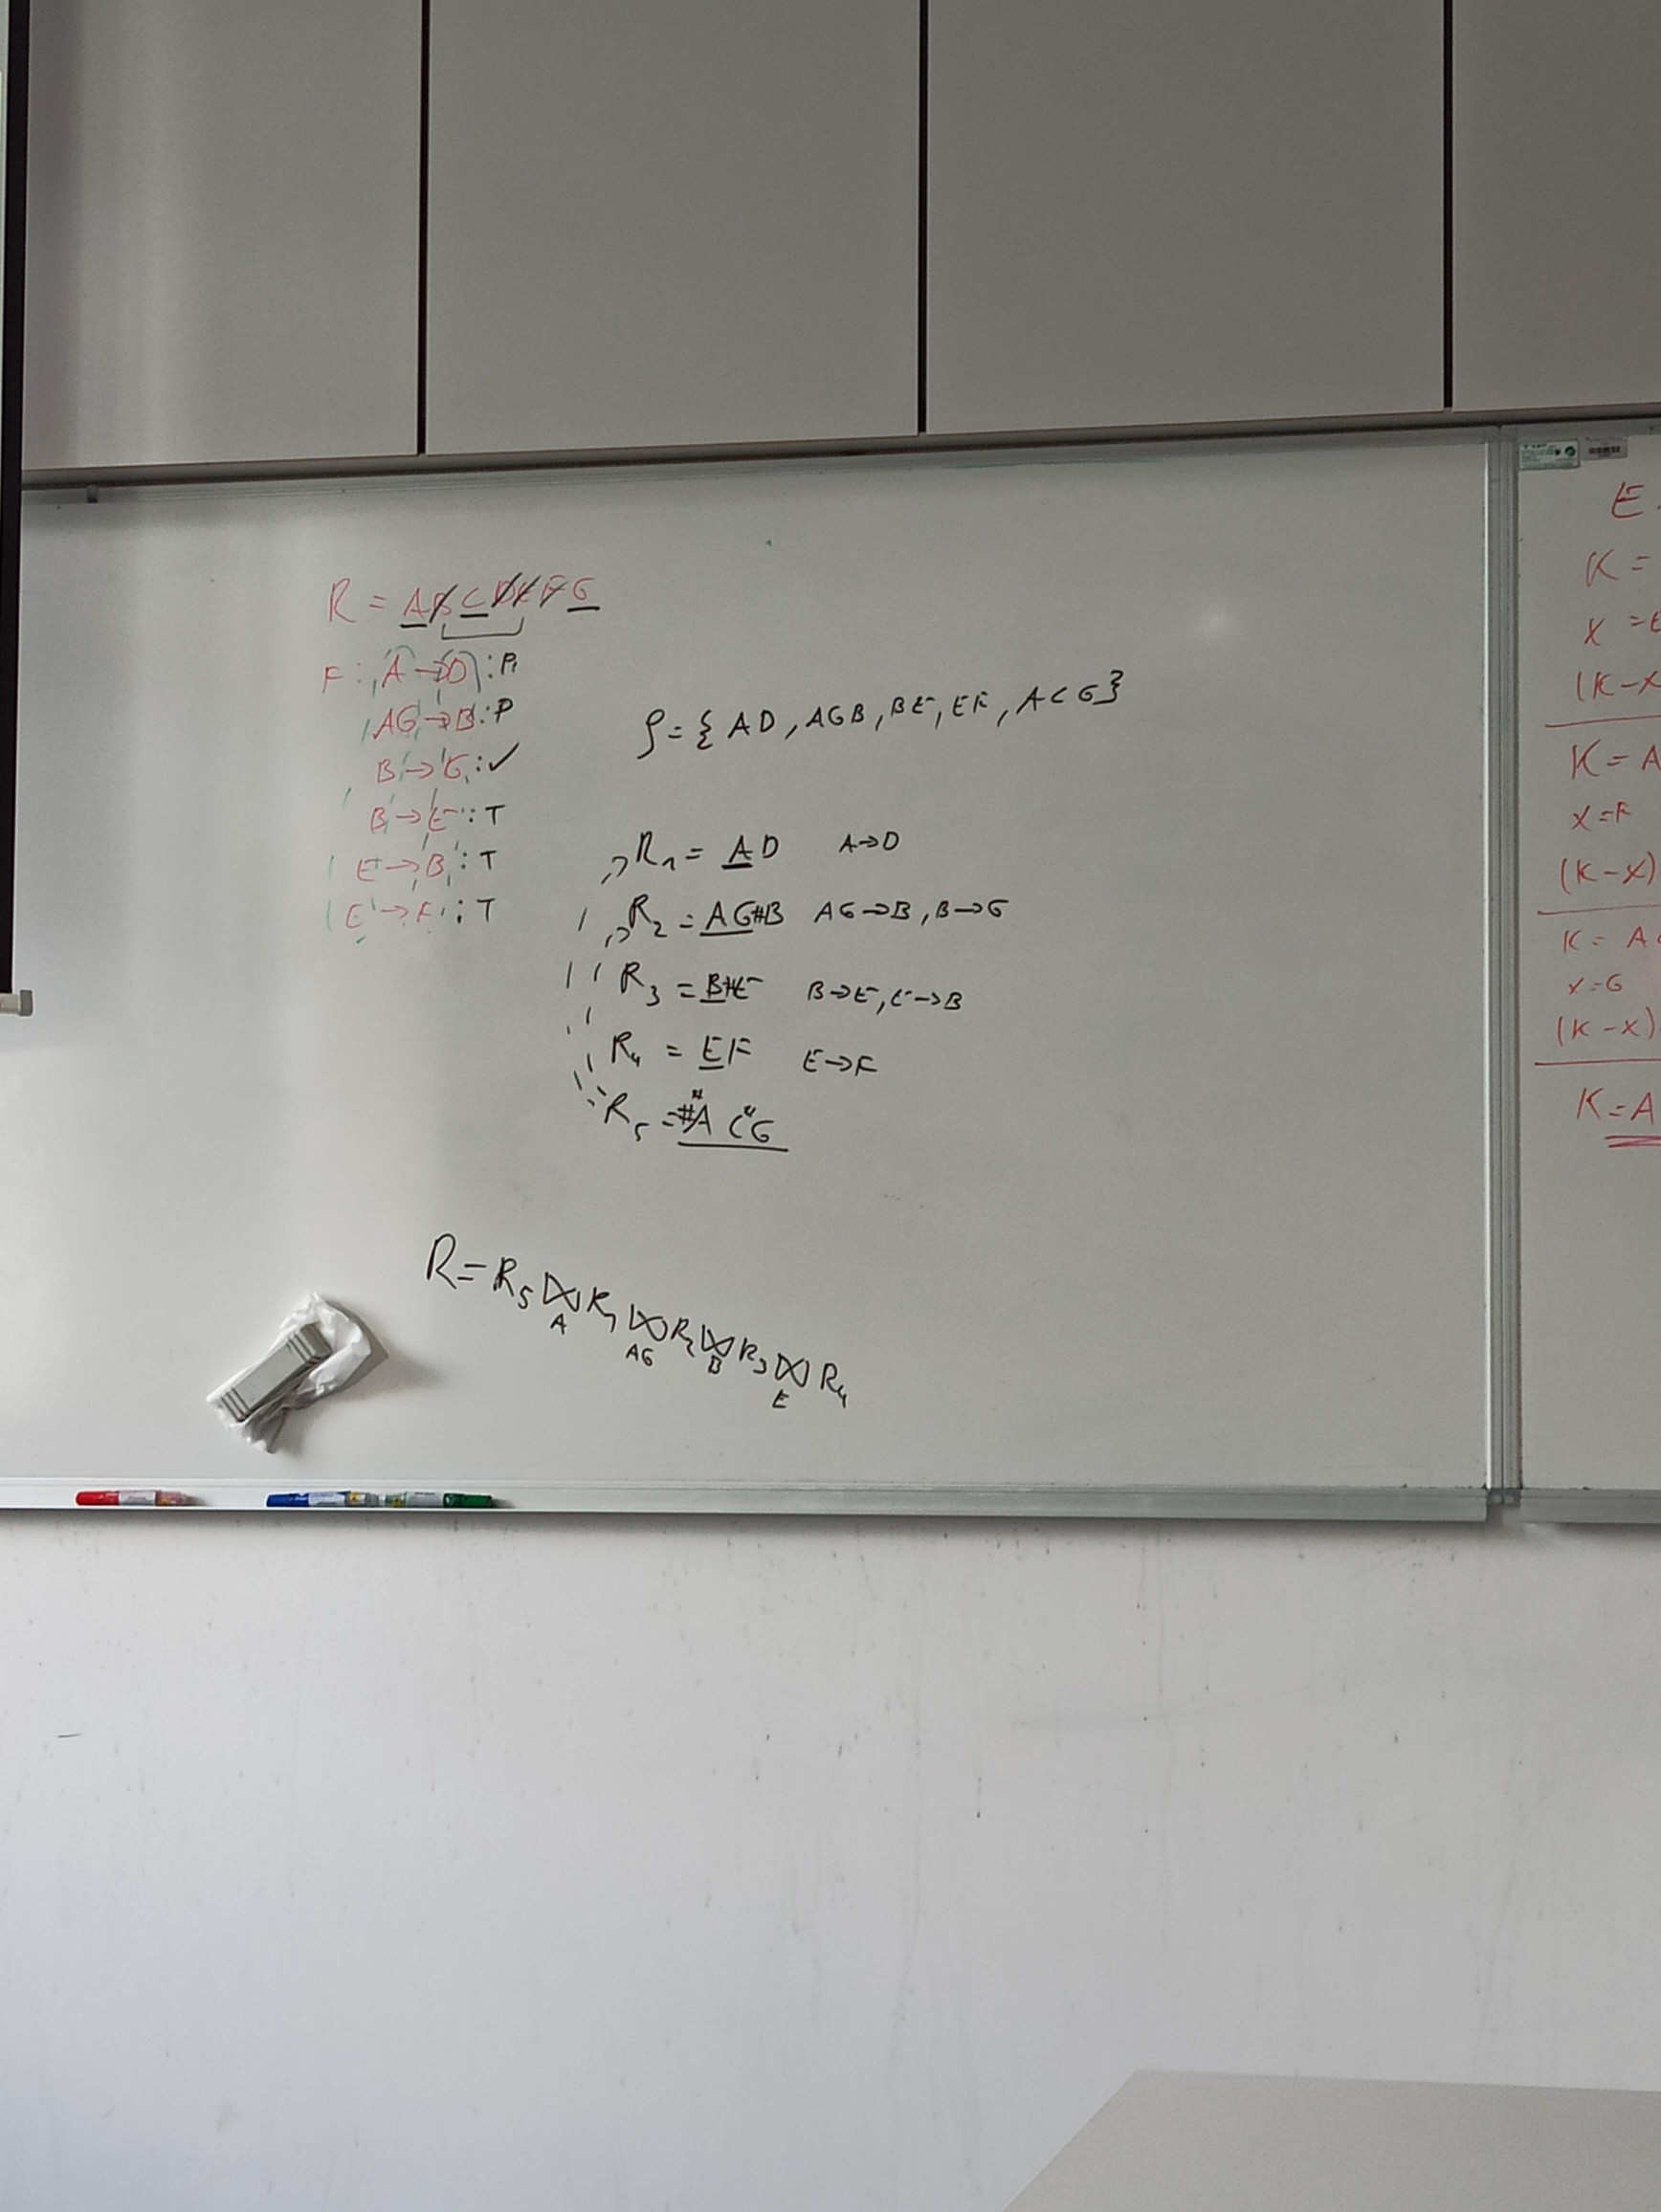 R = ABCDEFG
F: A→D : P
AG→B : P
B→G : ✓
B→E : T
E→B : T
E→F : T
ρ = { AD, AGB, BE, EF, ACG }
R₁ = AD A→D
R₂ = AG#B AG→B, B→G
R₃ = B#E B→E, E→B
R₄ = EF E→F
R₅ = #A C#G
R = R₅ ⋈ R₁ ⋈ R₂ ⋈ R₃ ⋈ R₄
A AG B E
E
K =
X =E
(K-X
K = A
X = F
(K-X)
K = A
X = G
(K-X)
K = A